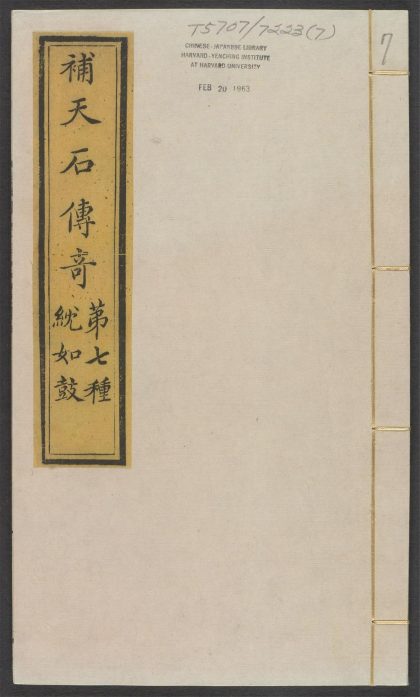 T5707/7223(7)
7
CHINESE-JAPANESE LIBRARY
HARVARD-YENCHING INSTITUTE
AT HARVARD UNIVERSITY
FEB 20 1963
補天石傳奇
苐七種
紞如鼓